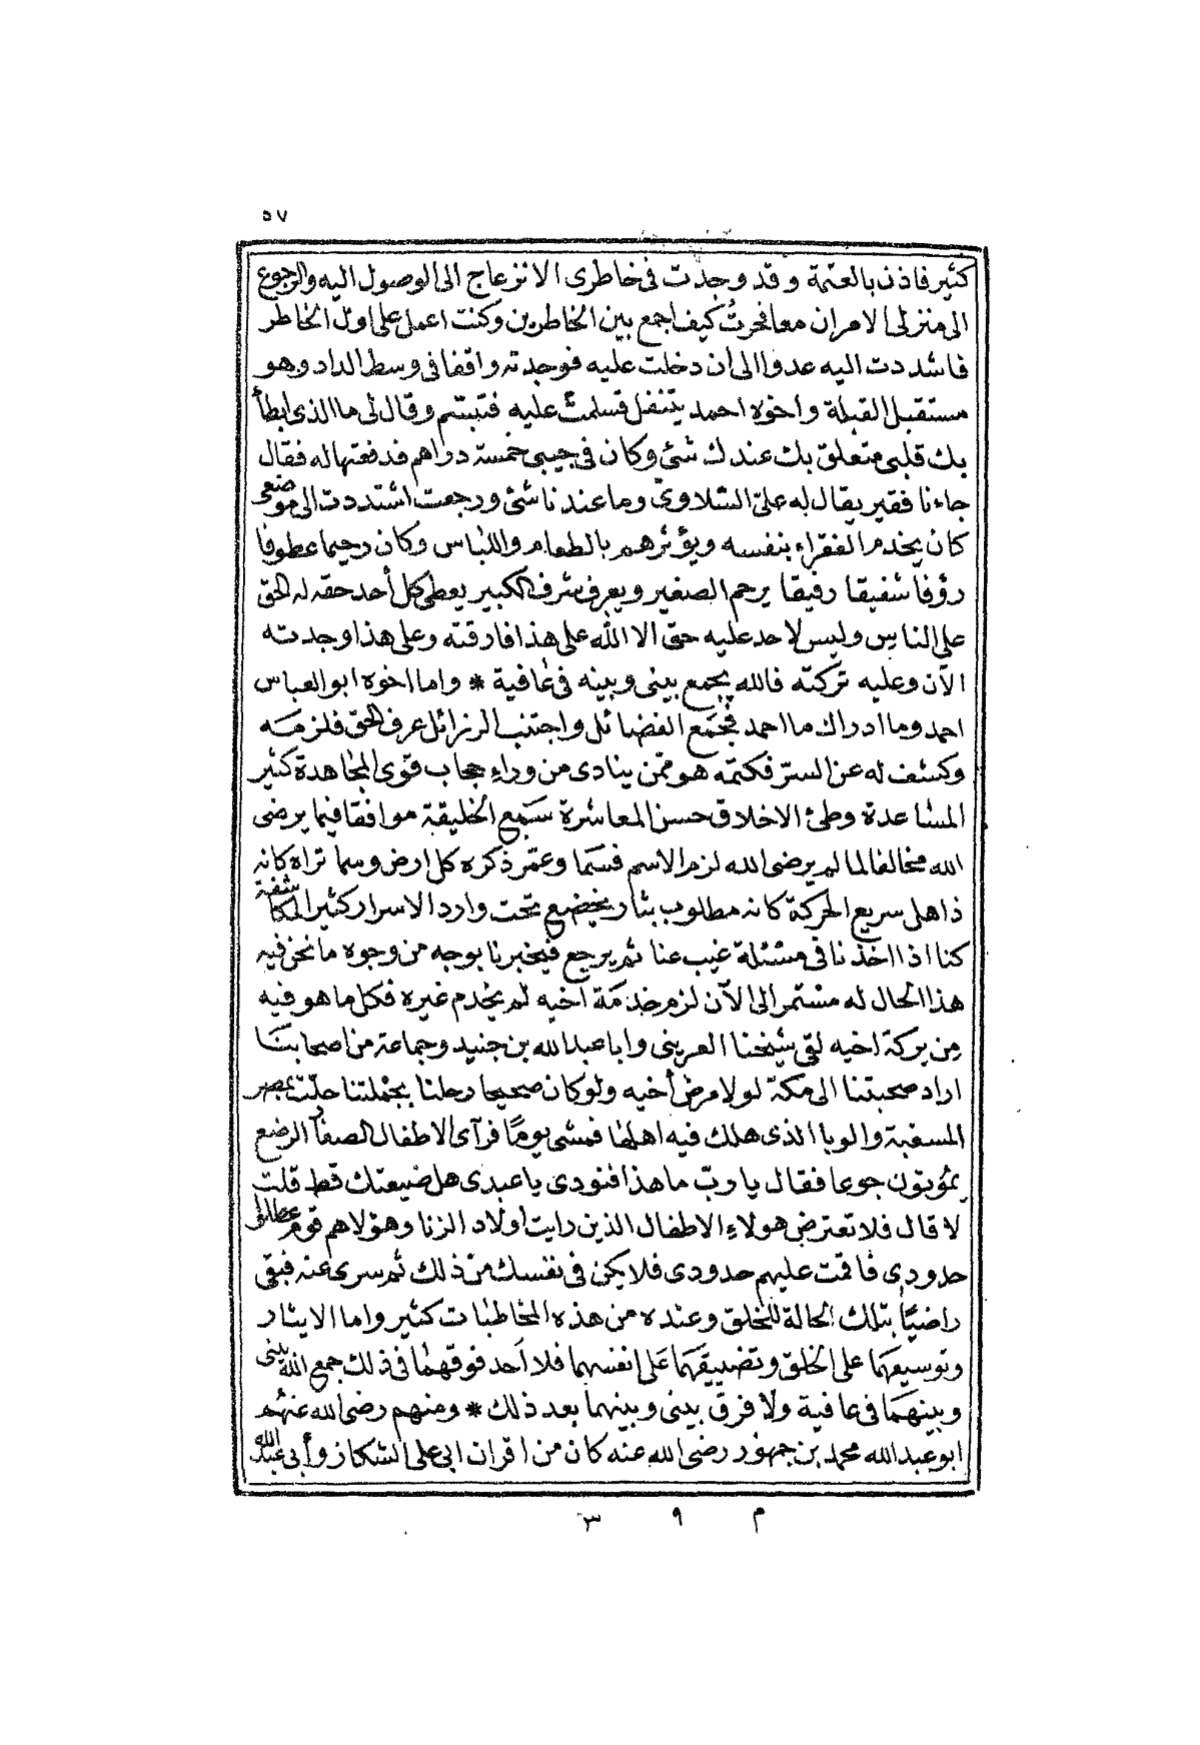 ٥٧
كثير فاذن بالعتمة وقد وجدت في خاطرى الانزعاج الى الوصول اليه والرجوع
الى منزلى الامران معا فحرت كيف اجمع بين الخاطرين وكنت اعمل على اول الخاطر
فاشددت اليه عدوا الى ان دخلت عليه فوجدته واقفا فى وسط الدار وهو
مستقبل القبلة واخوه احمد يتنفل فسلمت عليه فتبسم وقال لى ما الذى ابطأ
بك قلبى متعلق بك عندك شئ وكان فى جيبى خمسة دراهم فدفعتها له فقال
جاءنا فقير يقال له على السلاوى وما عندنا شئ ورجعت اشتددت الى موضعى
كان يخدم الفقراء بنفسه ويؤثرهم بالطعام واللباس وكان رحيما عطوفا
رؤفا شفيقا رفيقا يرحم الصغير ويعرف شرف الكبير يعطى كل أحد حقه له الحق
على الناس وليس لاحد عليه حق الا الله على هذا فارقته وعلى هذا وجدته
الآن وعليه تركته فالله يجمع بينى وبينه فى عافية * واما اخوه ابو العباس
احمد وما ادراك ما احمد مجمع الفضائل واجتنب الرزائل عرف الحق فلزمه
وكشف له عن السر فكتمه هو ممن ينادى من وراء حجاب قوى المجاهدة كثير
المشاعدة وطئ الاخلاق حسن المعاشرة سمع الخليقة موافقا فيما يرضى
الله مخالفا لما لم يرضى الله لزم الاسم فسما وعمر ذكره كل ارض وسما تراه كانه
ذاهل سريع الحركة كانه مطلوب بثار يخضع تحت وارد الاسرار كثير المكاشفة
كنا اذا اخذنا فى مسئلة غيب عنا ثم يرجع فيخبرنا بوجه من وجوه ما نحن فيه
هذا الحال له مستمر الى الآن لزم خدمة اخيه لم يخدم غيره فكل ما هو فيه
من بركة اخيه لقى شيخنا العرينى وابا عبد الله بن جنيد وجماعة من اصحابنا
اراد صحبتنا الى مكة لولا مرض أخيه ولو كان صحيحا رحلنا بجملتنا حلت بمصر
المسغبة والوبا الذى هلك فيه اهلها فمشى يوما فرآى الاطفال الصغار الرضع
يموتون جوعا فقال يا رب ما هذا فنودى يا عبدى هل ضيعتك قط قلت
لا قال فلا تعترض هولاء الاطفال الذين رايت اولاد الزنا وهؤلاهم قوم عطلوا
حدودى فاقمت عليهم حدودى فلا يكن فى نفسك من ذلك ثم سرى عنه فبقى
راضيا بتلك الحالة للخلق وعنده من هذه المخاطبات كثير واما الايثار
وتوسيعهما على الخلق وتضييقهما على انفسهما فلا احد فوقهما فى ذلك جمع الله بينى
وبينهما فى عافية ولا فرق بينى وبينهما بعد ذلك * ومنهم رضى الله عنهم
ابو عبد الله محمد بن جمهور رضى الله عنه كان من اقران ابى على الشكاز وأبى عبد الله
م ٩ ٣